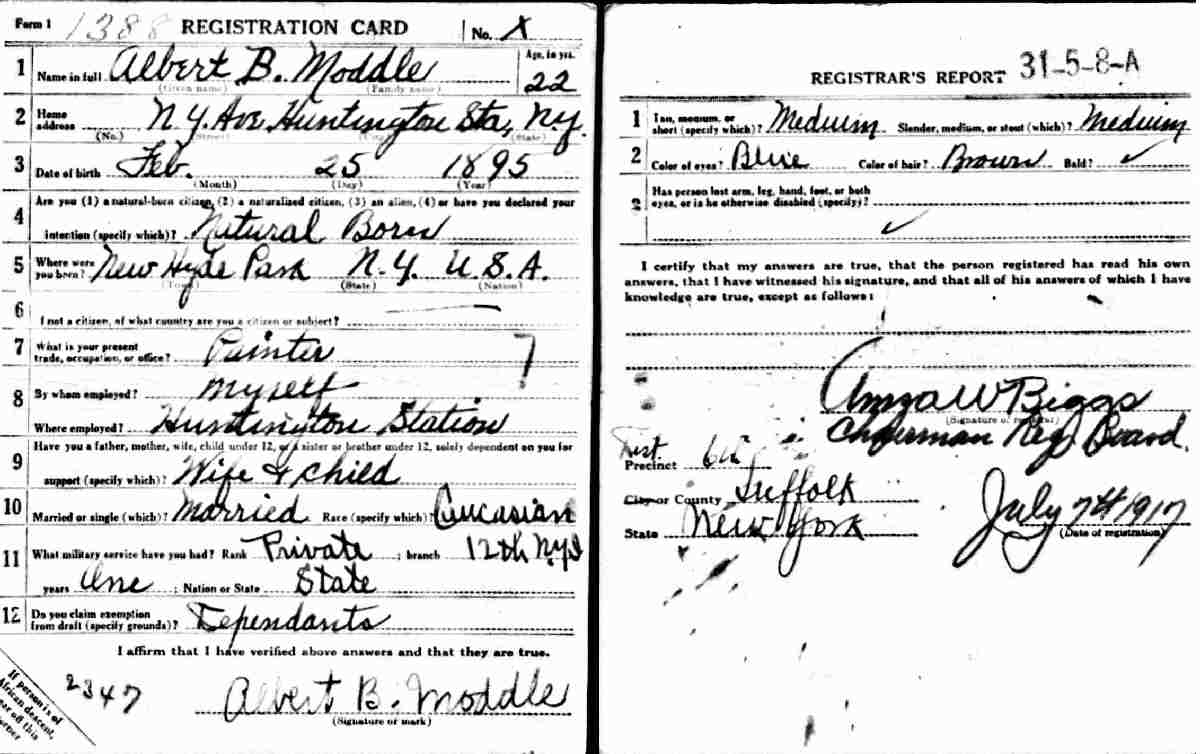 Form 1 1388 REGISTRATION CARD No. X
1 Name in full Albert B. Moddle Age, in yrs. 22
(Given name) (Family name)
2 Home address N.Y. Ave. Huntington Sta, N.Y.
(No.) (Street) (City) (State)
3 Date of birth Feb. 25 1895
(Month) (Day) (Year)
4 Are you (1) a natural-born citizen, (2) a naturalized citizen, (3) an alien, (4) or have you declared your
intention (specify which)? Natural Born
5 Where were you born? New Hyde Park N.Y. U.S.A.
(Town) (State) (Nation)
6 I not a citizen, of what country are you a citizen or subject? —
7 What is your present trade, occupation, or office? Painter 7
8 By whom employed? Myself
Where employed? Huntington Station
9 Have you a father, mother, wife, child under 12, or a sister or brother under 12, solely dependent on you for
support (specify which)? Wife & child
10 Married or single (which)? Married Race (specify which)? Caucasian
11 What military service have you had? Rank Private ; branch 12th N.Y.
years One ; Nation or State State
12 Do you claim exemption from draft (specify grounds)? Dependants
I affirm that I have verified above answers and that they are true.
2347 Albert B. Moddle
(Signature or mark)
If person is of
African descent,
tear off this
corner
REGISTRAR'S REPORT 31-5-8-A
1 Tall, medium, or short (specify which)? Medium Slender, medium, or stout (which)? Medium
2 Color of eyes? Blue Color of hair? Brown Bald? ✓
3 Has person lost arm, leg, hand, foot, or both
eyes, or is he otherwise disabled (specify)?
✓
I certify that my answers are true, that the person registered has read his own
answers, that I have witnessed his signature, and that all of his answers of which I have
knowledge are true, except as follows:
Amza W Biggs
(Signature of registrar)
Chairman Reg. Board.
Dist.
Precinct
City or County Suffolk
State New York
July 7th 1917
(Date of registration)